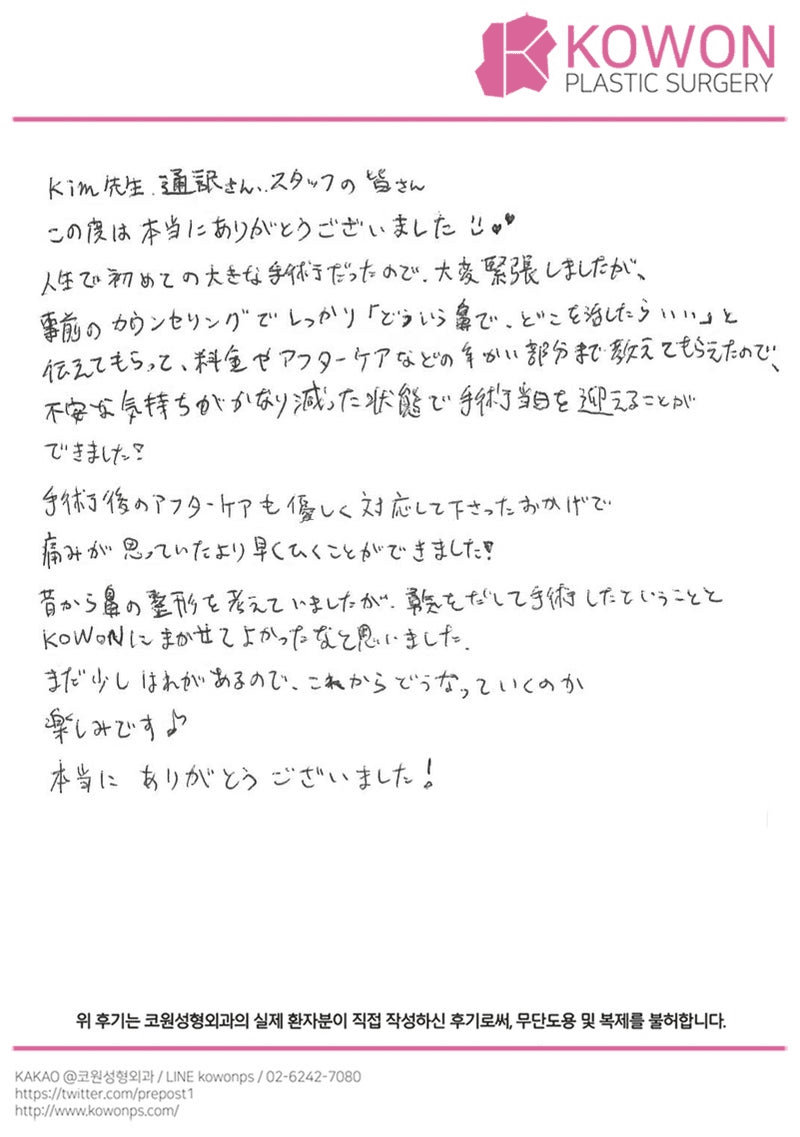 KOWON
PLASTIC SURGERY
Kim先生、通訳さん、スタッフの皆さん
この度は本当にありがとうございました!!♥♥
人生で初めての大きな手術だったので、大変緊張しましたが、
事前のカウンセリングでしっかり「どういう鼻で、どこを治したらいい」と
伝えてもらって、料金やアフターケアなどの細かい部分まで教えてもらえたので、
不安な気持ちがかなり減った状態で手術当日を迎えることが
できました!
手術後のアフターケアも優しく対応して下さったおかげで
痛みが思っていたより早くひくことができました!
昔から鼻の整形を考えていましたが、勇気をだして手術したということと
KOWONにまかせてよかったなと思いました。
まだ少しはれがあるので、これからどうなっていくのか
楽しみです♪
本当に ありがとう ございました!
위 후기는 코원성형외과의 실제 환자분이 직접 작성하신 후기로써, 무단도용 및 복제를 불허합니다.
KAKAO @코원성형외과 / LINE kowonps / 02-6242-7080
https://twitter.com/prepost1
http://www.kowonps.com/